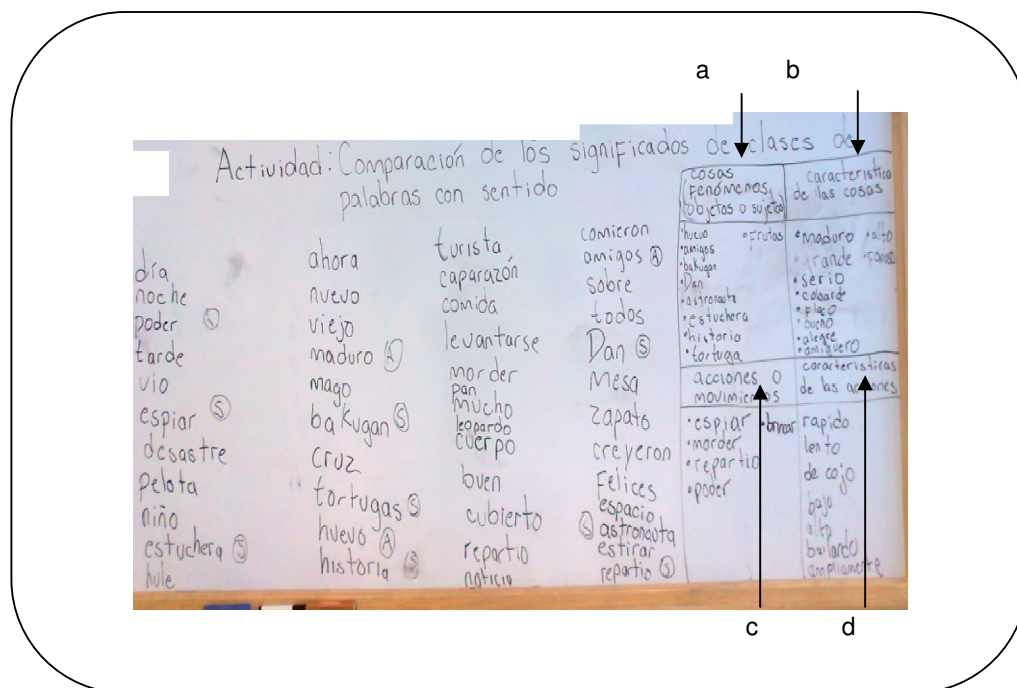 a b
Actividad: Comparación de los significados de clases de
palabras con sentido
día
noche
poder Ⓢ
tarde
vio
espiar Ⓢ
desastre
pelota
niño
estuchera Ⓢ
hule
ahora
nuevo
viejo
maduro Ⓐ
mago
bakugan Ⓢ
cruz
tortugas Ⓢ
huevo Ⓐ
historia Ⓢ
turista
caparazón
comida
levantarse
morder
pan
mucho
leopardo
cuerpo
buen
cubierto
repartio
noticia
comieron
amigos Ⓐ
sobre
todos
Dan Ⓢ
Mesa
zapato
creyeron
Felices
espacio
Ⓢ astronauta
estirar
repartio Ⓢ
cosas
(Fenómenos,
objetos o sujetos)
•huevo •Frutas
•amigos
•bakugan
•Dan
•astronauta
•estuchera
•historia
•tortuga
característica
de las cosas
•maduro •alto
•grande •Famoso
•serio
•cobarde
•flaco
•bueno
•alegre
•amiguero
acciones o
movimientos
•espiar •brincar
•morder
•repartio
•poder
características
de las acciones
rapido
lento
de cojo
bajo
alto
bailando
ampliamente
c d